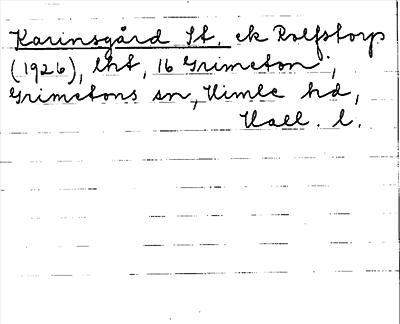 Karinsgård St. ek Rolfstorp
(1926), lht, 16 Grimeton,
Grimetons sn, Himle hd,
Hall. l.